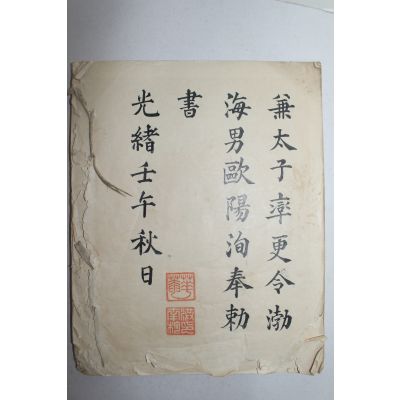 兼太子率更令渤
海男歐陽洵奉勅
書
光緒壬午秋日